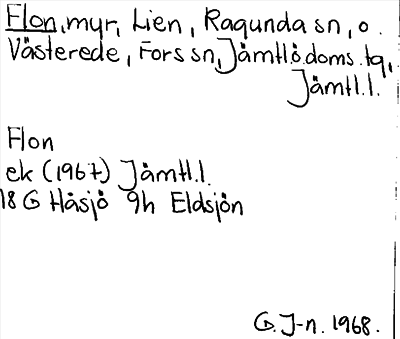 Flon, myr, Lien, Ragunda sn, o.
Västerede, Fors sn, Jämtl.ö.doms.tg,
Jämtl.l.
Flon
ek (1967) Jämtl.l.
18 G Håsjö 9h Eldsjön
G. J-n. 1968.